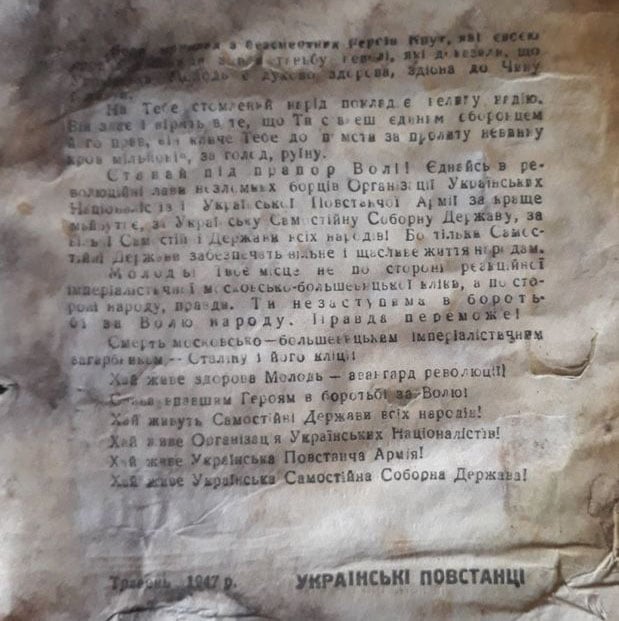 з безсмертних Героїв Крут, які своєю
боротьбу геної, які довели, що
Молодь є духово здорова, здібна до Чину
На Тебе стомлений нарід покладає велику надію.
Він знає і вірить в те, що Ти станеш єдиним оборонцем
його прав, він кличе Тебе до помсти за пролиту невинну
кров мільйонів, за голод, руїну.
Ставай під прапор Волі! Єднайсь в ре-
волюційні лави незломних борців Організації Українських
Націоналістів і Української Повстанчої Армії за краще
майбутнє, за Українську Самостійну Соборну Державу, за
Вільні Самостійні Держави всіх народів! Бо тільки Самос-
тійні Держави забезпечать вільне і щасливе життя народам.
Молодь! Твоє місце не по стороні реакційної
імперіялістичної московсько-большевицької кліки, а по сто-
роні народу, правди. Ти незаступима в бороть-
бі за Волю народу. Правда переможе!
Смерть московсько—большевицьким імперіялістичним
загарбникам — Сталіну і його кліці!
Хай живе здорова Молодь — авангард революції!
Слава впавшим Героям в боротьбі за Волю!
Хай живуть Самостійні Держави всіх народів!
Хай живе Організація Українських Націоналістів!
Хай живе Українська Повстанча Армія!
Хай живе Українська Самостійна Соборна Держава!
Травень 1947 р. УКРАЇНСЬКІ ПОВСТАНЦІ